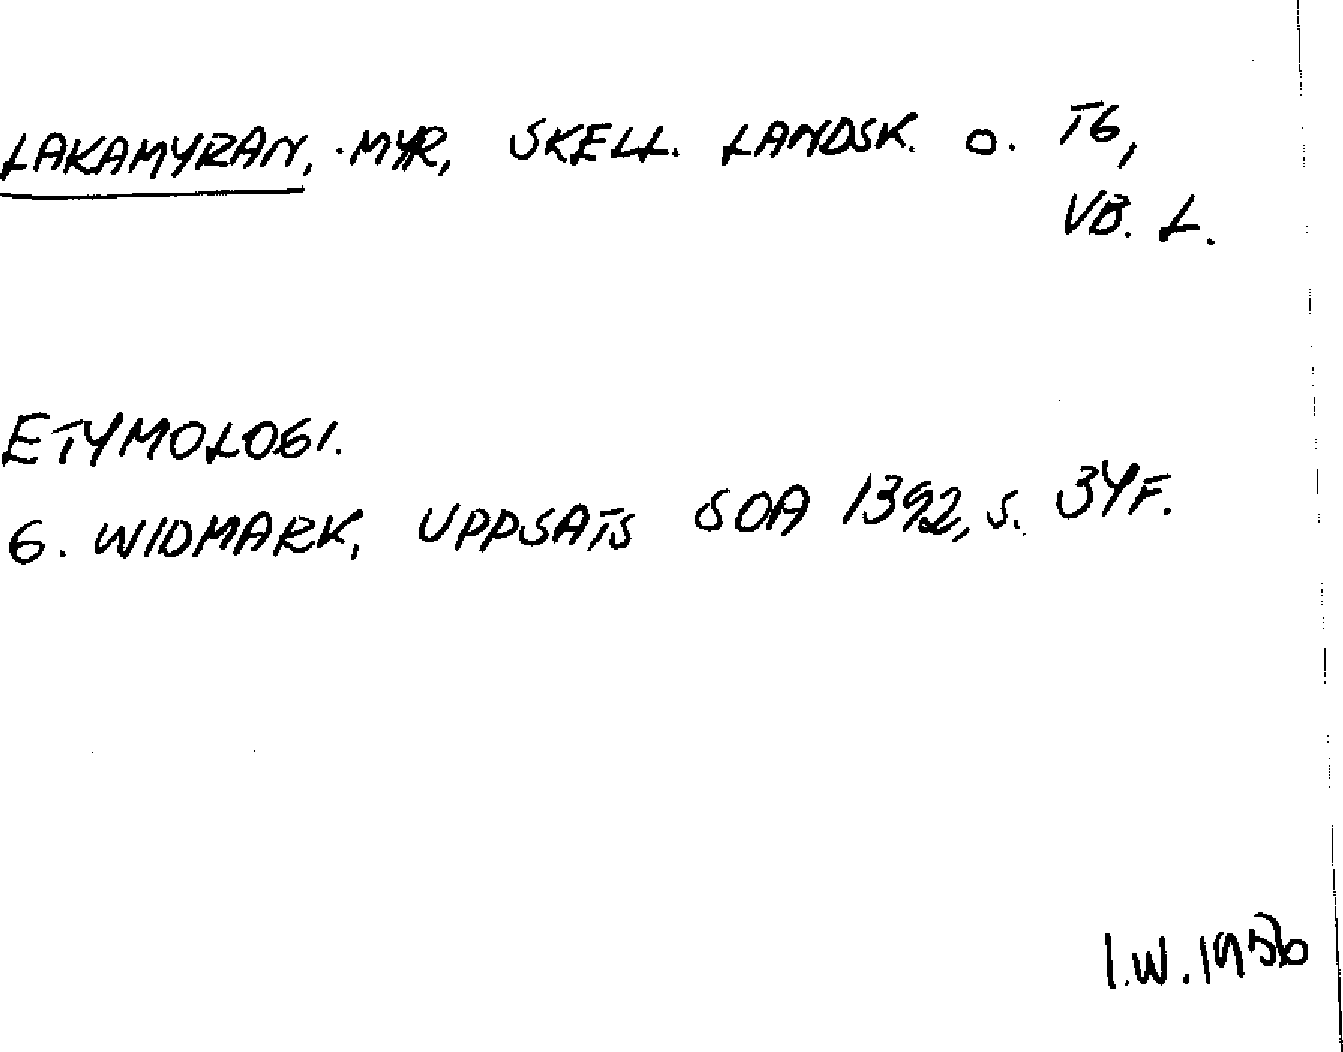 LAKAMYRAN, MYR, SKELL. LANDSK. O. TG,
VB. L.
ETYMOLOGI.
G. WIDMARK, UPPSATS SOA 1392, S. 34F.
I.W. 1956